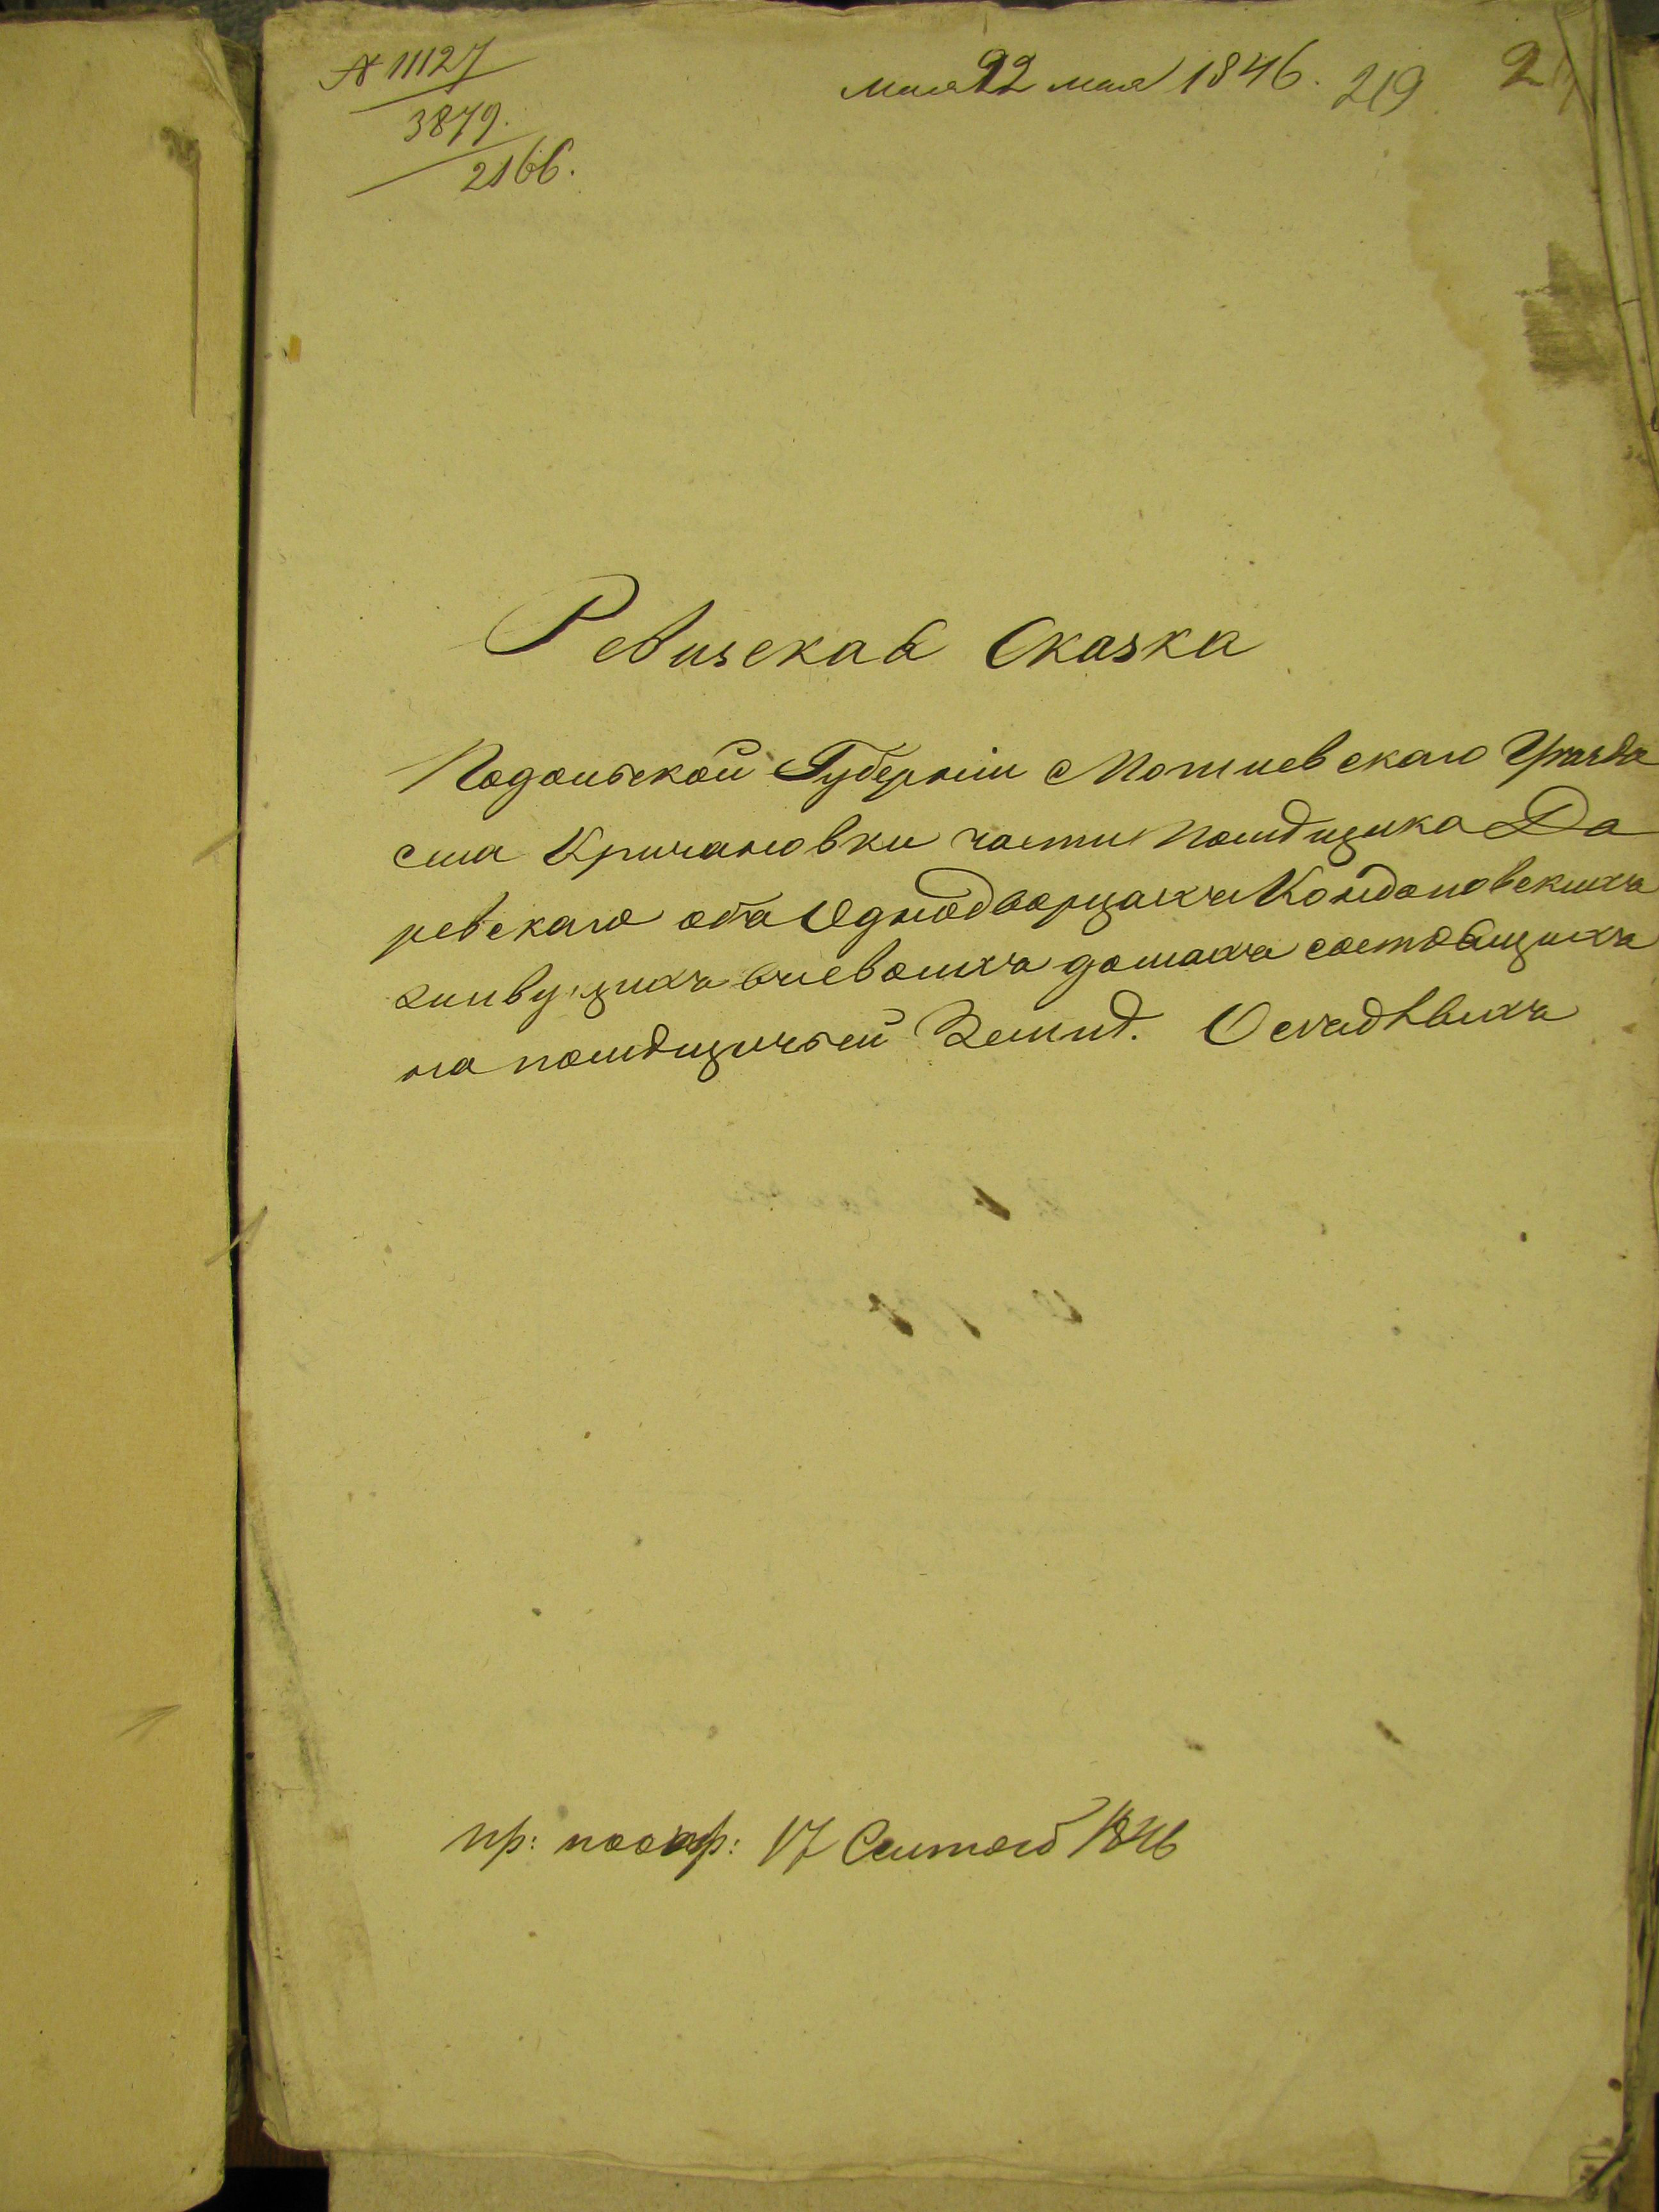 № 11127
3879.
2166.
мая 22 мая 1846. 219 2
Ревизская Сказка
Подольской Губерніи Могилевскаго Уѣзда
села Кричановки части Помѣщика Да
ревскаго объ Однодворцахъ
живущихъ въ своихъ домахъ состоящихъ
на помѣщичьей Землѣ. Осѣдлыхъ
пр: 17 1846